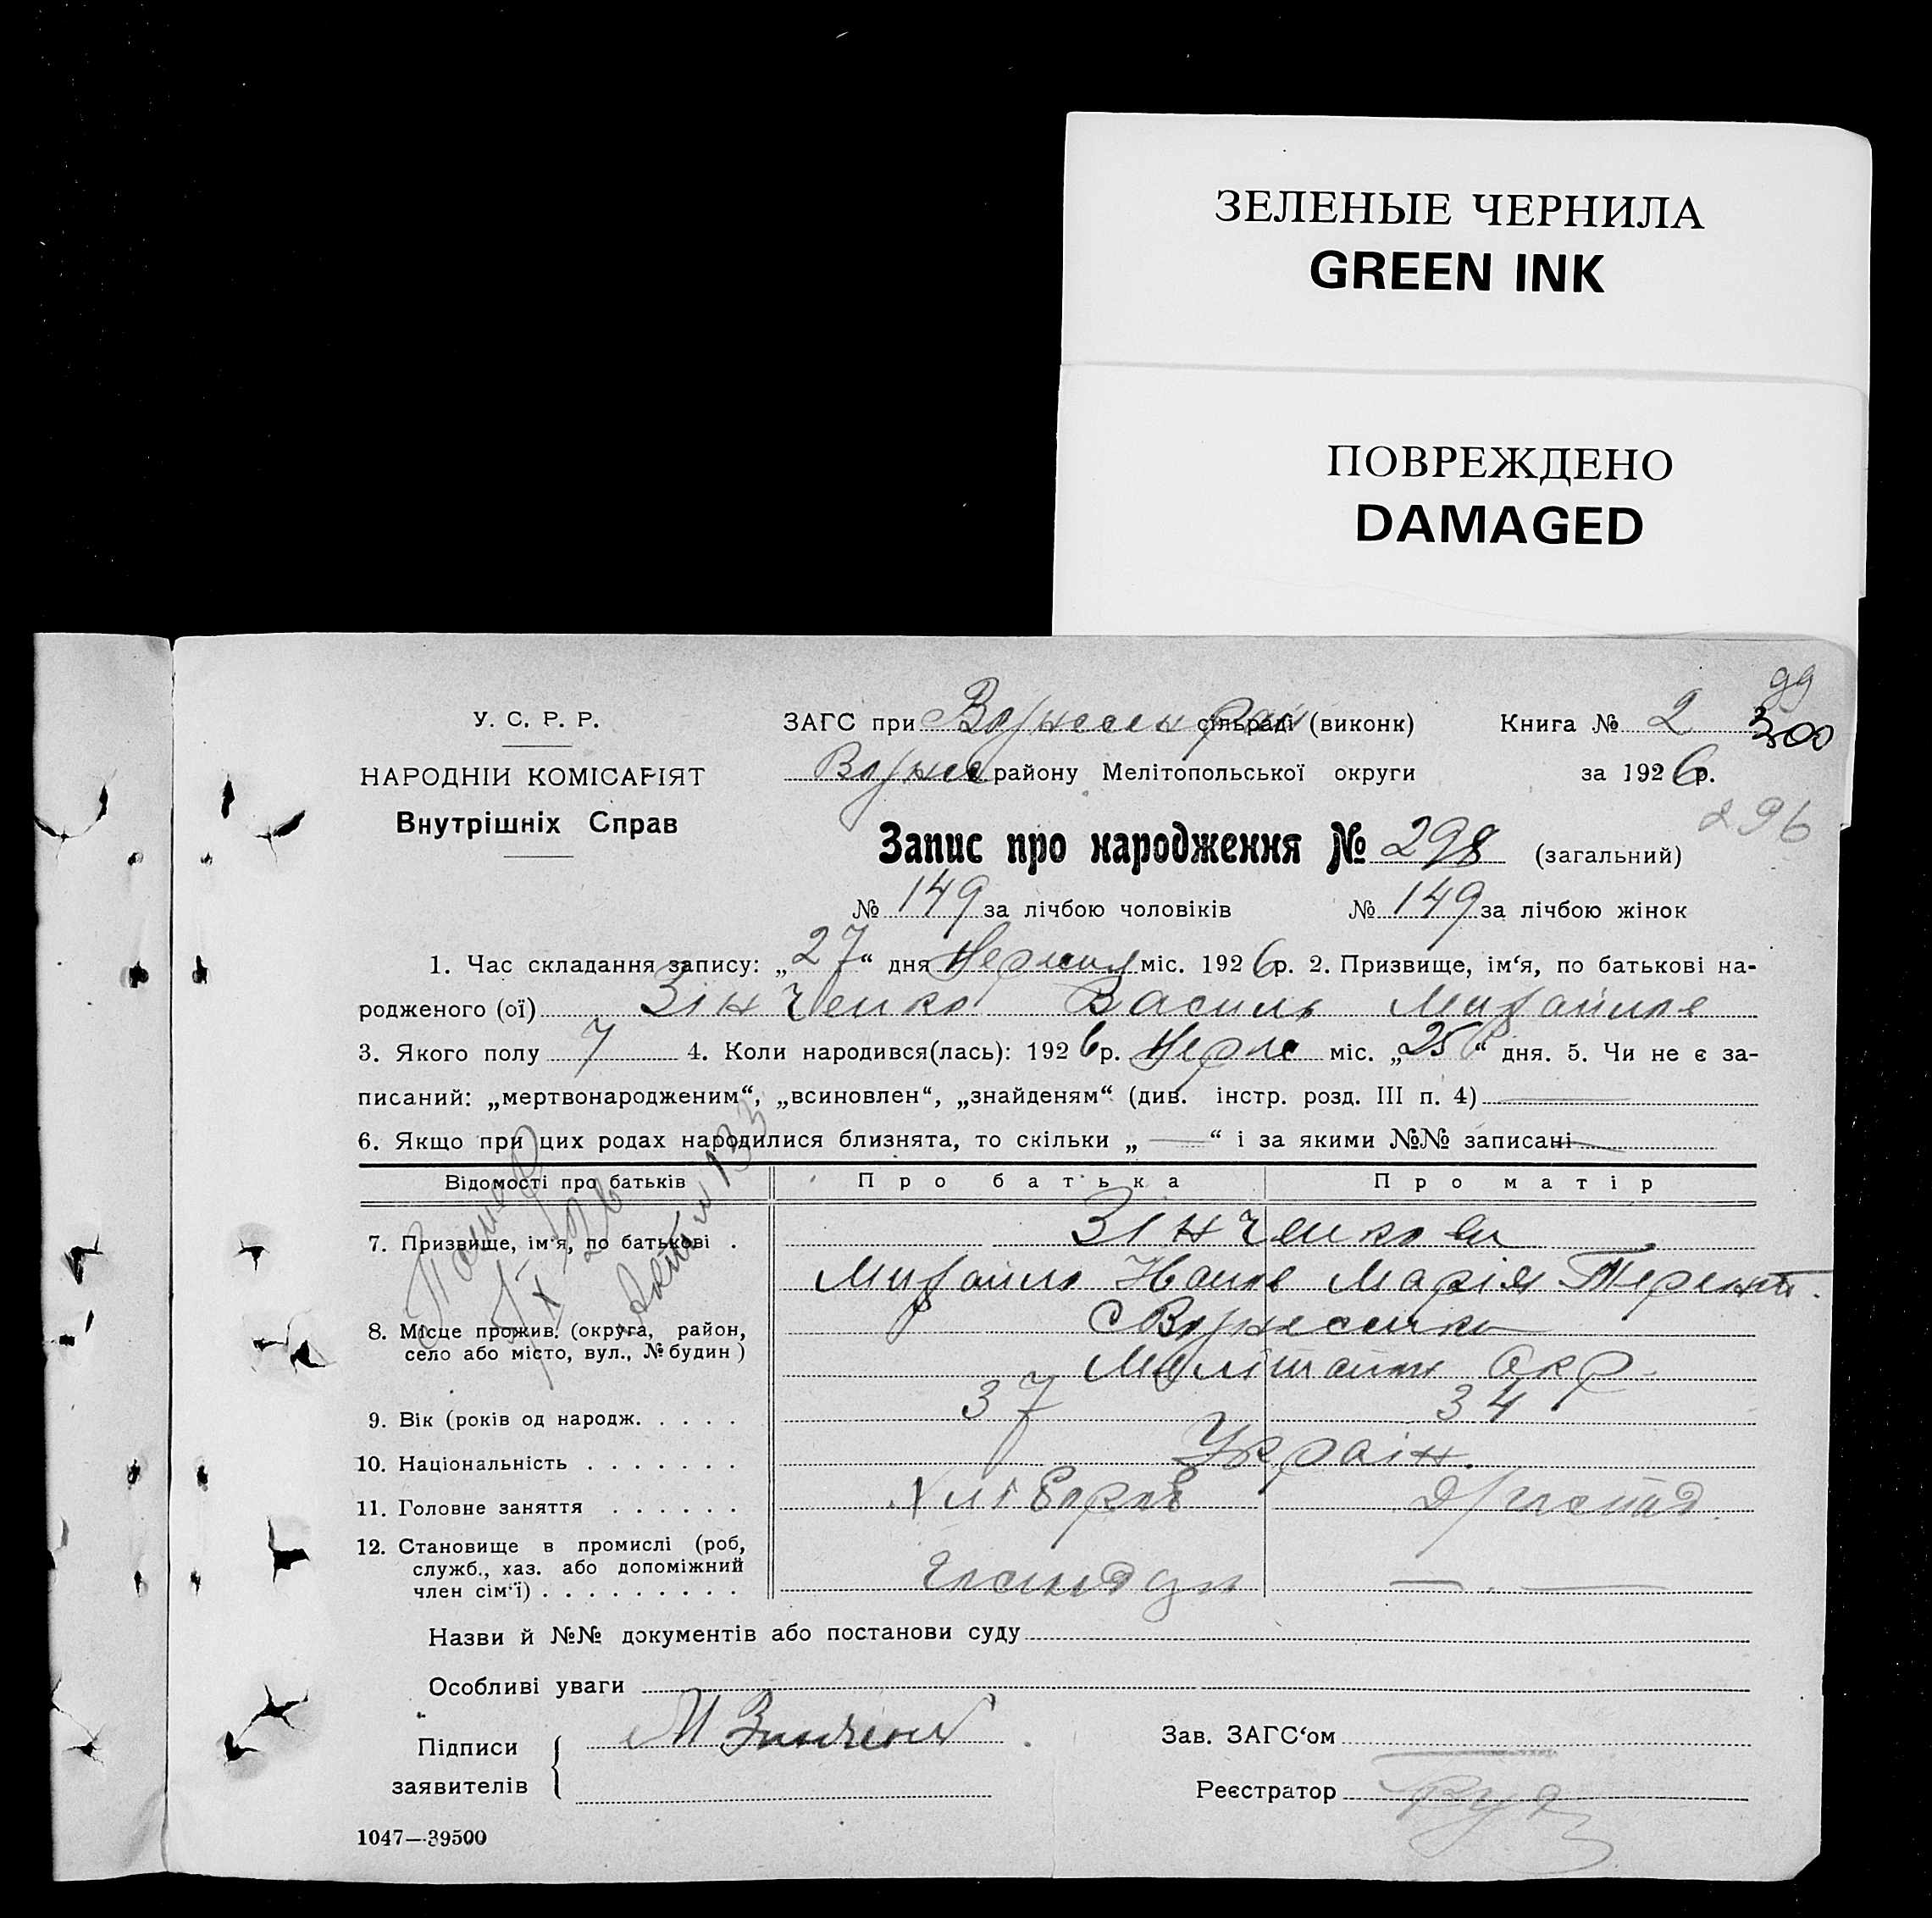 ЗЕЛЕНЫЕ ЧЕРНИЛА
GREEN INK
ПОВРЕЖДЕНО
DAMAGED
99
У. С. Р. Р.
ЗАГС при Вознесен рай сільраді (виконк) Книга № 2 300
НАРОДНІЙ КОМІСАРІЯТ
Вознес району Мелітопольської округи за 1926 р.
Внутрішніх Справ
296
Запис про народження № 298 (загальний)
№ 149 за лічбою чоловіків № 149 за лічбою жінок
1. Час складання запису: „27“ дня Червня міс. 1926 р. 2. Призвище, ім‘я, по батькові на-
родженого (ої) Зінченко Василь Михайлов
3. Якого полу Ч 4. Коли народився(лась): 1926 р. міс. „25“ дня. 5. Чи не є за-
писаний: „мертвонародженим“, „всиновлен“, „знайденям“ (див. інстр. розд. III п. 4)
6. Якщо при цих родах народилися близнята, то скільки „—“ і за якими №№ записані
133
Відомості про батьків Про батька Про матір
7. Призвище, ім‘я, по батькові . Зінченкови
Михайло Іванов Марія Терент.
8. Місце прожив. (округа, район, с Вознесенка
село або місто, вул., № будин)
Меліт окр.
9. Вік (років од народж. . . . . 37 34
10. Національність . . . . . . . Україн.
11. Головне заняття . . . . . . Хлібороб
12. Становище в промислі (роб,
служб., хаз. або допоміжний
член сім‘ї) . . . . . . . . .
Назви й №№ документів або постанови суду
Особливі уваги
Підписи М Зинченко Зав. ЗАГС‘ом
заявителів Реєстратор
1047—39500